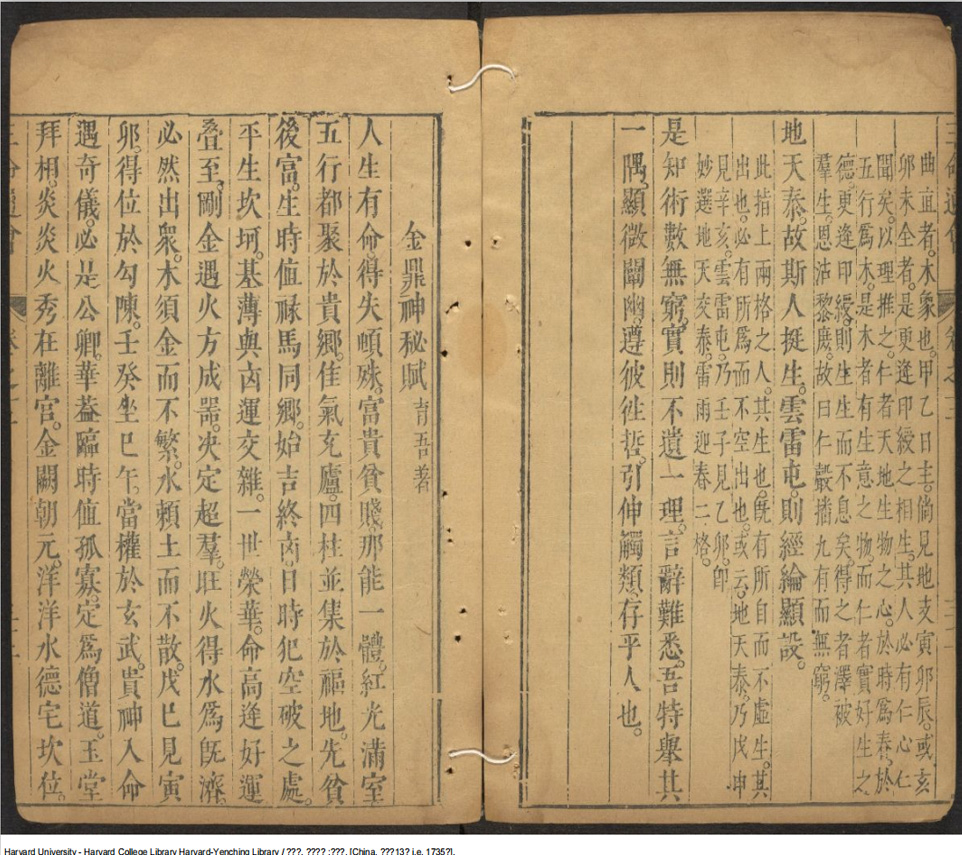 三命通會
曲直者。木象也。甲乙日主。倘見地支寅卯辰。或亥
卯未全者。是更逢印綬之相生。其人必有仁心。仁
聞矣。以理推之。仁者天地生物之心。於時爲春。於
五行爲木。是木者有生意之物。而仁者實好生之
德。更逢印綬。則生生而不息矣。得之者澤被
羣生。恩沾黎庶。故曰仁嚴播九有而無窮。
地天泰。故斯人挺生。雲雷屯。則經綸顯設。
此指上兩格之人。其生也。既有所自而不虛生。其
出也。必有所爲而不空出也。或云。地天泰。乃戊申
見辛亥。雲雷屯。乃壬子見乙卯。即
妙選地天交泰。雷雨迎春二格。
是知術數無窮。實則不遺一理。言辭難悉。吾特舉其
一隅。顯微闡幽。遵彼徃哲。引伸觸類。存乎人也。
金鼎神秘賦 青吾著
人生有命。得失頓殊。富貴貧賤。那能一體。紅光滿室
五行都聚於貴鄉。佳氣充廬。四柱並集於福地。先貧
後富。生時值祿馬同鄉。始吉終凶。日時犯空破之處。
平生坎坷。基薄與凶運交雜。一世榮華。命高逢好運
疊至。剛金遇火方成器。決定超羣。旺火得水爲既濟。
必然出衆。木須金而不繁。水賴土而不散。戊巳見寅
卯。得位於勾陳。壬癸坐巳午。當權於玄武。貴神入命
遇奇儀。必是公卿。華葢臨時值孤寡。定爲僧道。玉堂
拜相。炎炎火秀在離宮。金闕朝元。洋洋水德宅坎位。
Harvard University - Harvard College Library Harvard-Yenching Library / ???. ???? :???. [China. ???13? i.e. 1735?].